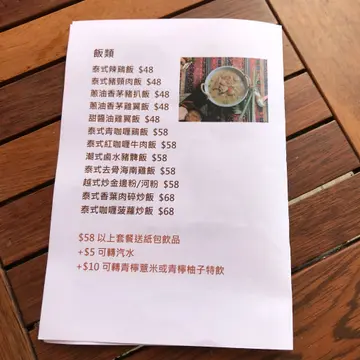 飯類
泰式辣鷄飯 $48
泰式豬頸肉飯 $48
蔥油香茅豬扒飯 $48
蔥油香茅雞翼飯 $48
甜醬油雞翼飯 $48
泰式青咖喱鷄飯 $58
泰式紅咖喱牛肉飯 $58
潮式鹵水豬髀飯 $58
泰式去骨海南雞飯 $58
越式炒金邊粉/河粉 $58
泰式香葉肉碎炒飯 $68
泰式咖喱菠蘿炒飯 $68
$58 以上套餐送紙包飲品
+$5 可轉汽水
+$10 可轉青檸薏米或青檸柚子特飲